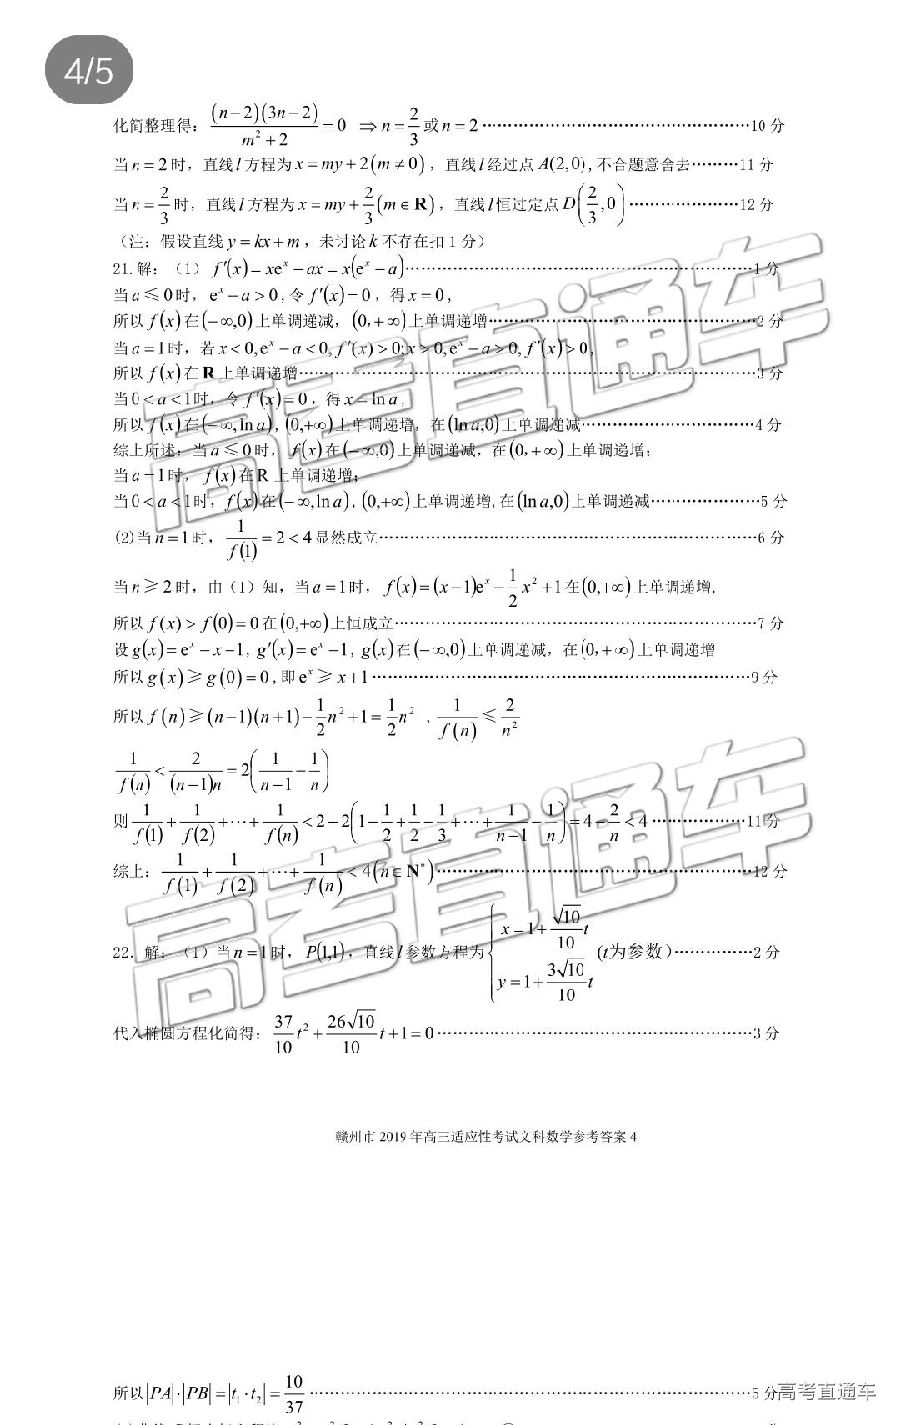 4/5
化简整理得：(n-2)(3n-2)/(m²+2)=0 ⇒n=2/3或n=2……10分
当n=2时，直线l方程为x=my+2(m≠0)，直线l经过点A(2,0),不合题意舍去………11分
当n=2/3时，直线l方程为x=my+2/3(m∈R)，直线l恒过定点D(2/3,0)……12分
（注：假设直线y=kx+m，未讨论k不存在扣1分）
21.解：（1）f′(x)=xeˣ-ax=x(eˣ-a)……1分
当a≤0时，eˣ-a>0,令f′(x)=0，得x=0,
所以f(x)在(-∞,0)上单调递减，(0,+∞)上单调递增……2分
当a=1时，若x<0,eˣ-a<0,f′(x)>0;x>0,eˣ-a>0,f′(x)>0,
所以f(x)在R上单调递增……3分
当0<a<1时，令f′(x)=0，得x=ln a,
所以f(x)在(-∞,ln a)，(0,+∞)上单调递增，在(ln a,0)上单调递减……4分
综上所述：当a≤0时，f(x)在(-∞,0)上单调递减，在(0,+∞)上单调递增；
当a=1时，f(x)在R上单调递增；
当0<a<1时，f(x)在(-∞,ln a)，(0,+∞)上单调递增,在(ln a,0)上单调递减……5分
(2)当n=1时，1/f(1)=2<4显然成立……6分
当n≥2时，由（1）知，当a=1时，f(x)=(x-1)eˣ-1/2x²+1在(0,+∞)上单调递增,
所以f(x)>f(0)=0在(0,+∞)上恒成立……7分
设g(x)=eˣ-x-1, g′(x)=eˣ-1, g(x)在(-∞,0)上单调递减，在(0,+∞)上单调递增
所以g(x)≥g(0)=0,即eˣ≥x+1……9分
所以f(n)≥(n-1)(n+1)-1/2n²+1=1/2n²，1/f(n)≤2/n²
1/f(n)<2/((n-1)n)=2(1/(n-1)-1/n)
则1/f(1)+1/f(2)+⋯+1/f(n)<2-2(1-1/2+1/2-1/3+⋯+1/(n-1)-1/n)=4-2/n<4……11分
综上：1/f(1)+1/f(2)+⋯+1/f(n)<4(n∈N*)……12分
22.解：（1）当n=1时，P(1,1)，直线l参数方程为{x=1+√10/10 t y=1+3√10/10 t (t为参数)……2分
代入椭圆方程化简得：37/10 t²+26√10/10 t+1=0……3分
赣州市2019年高三适应性考试文科数学参考答案4
所以|PA|·|PB|=|t₁·t₂|=10/37……5分
高考直通车
高考直通车
高考直通车